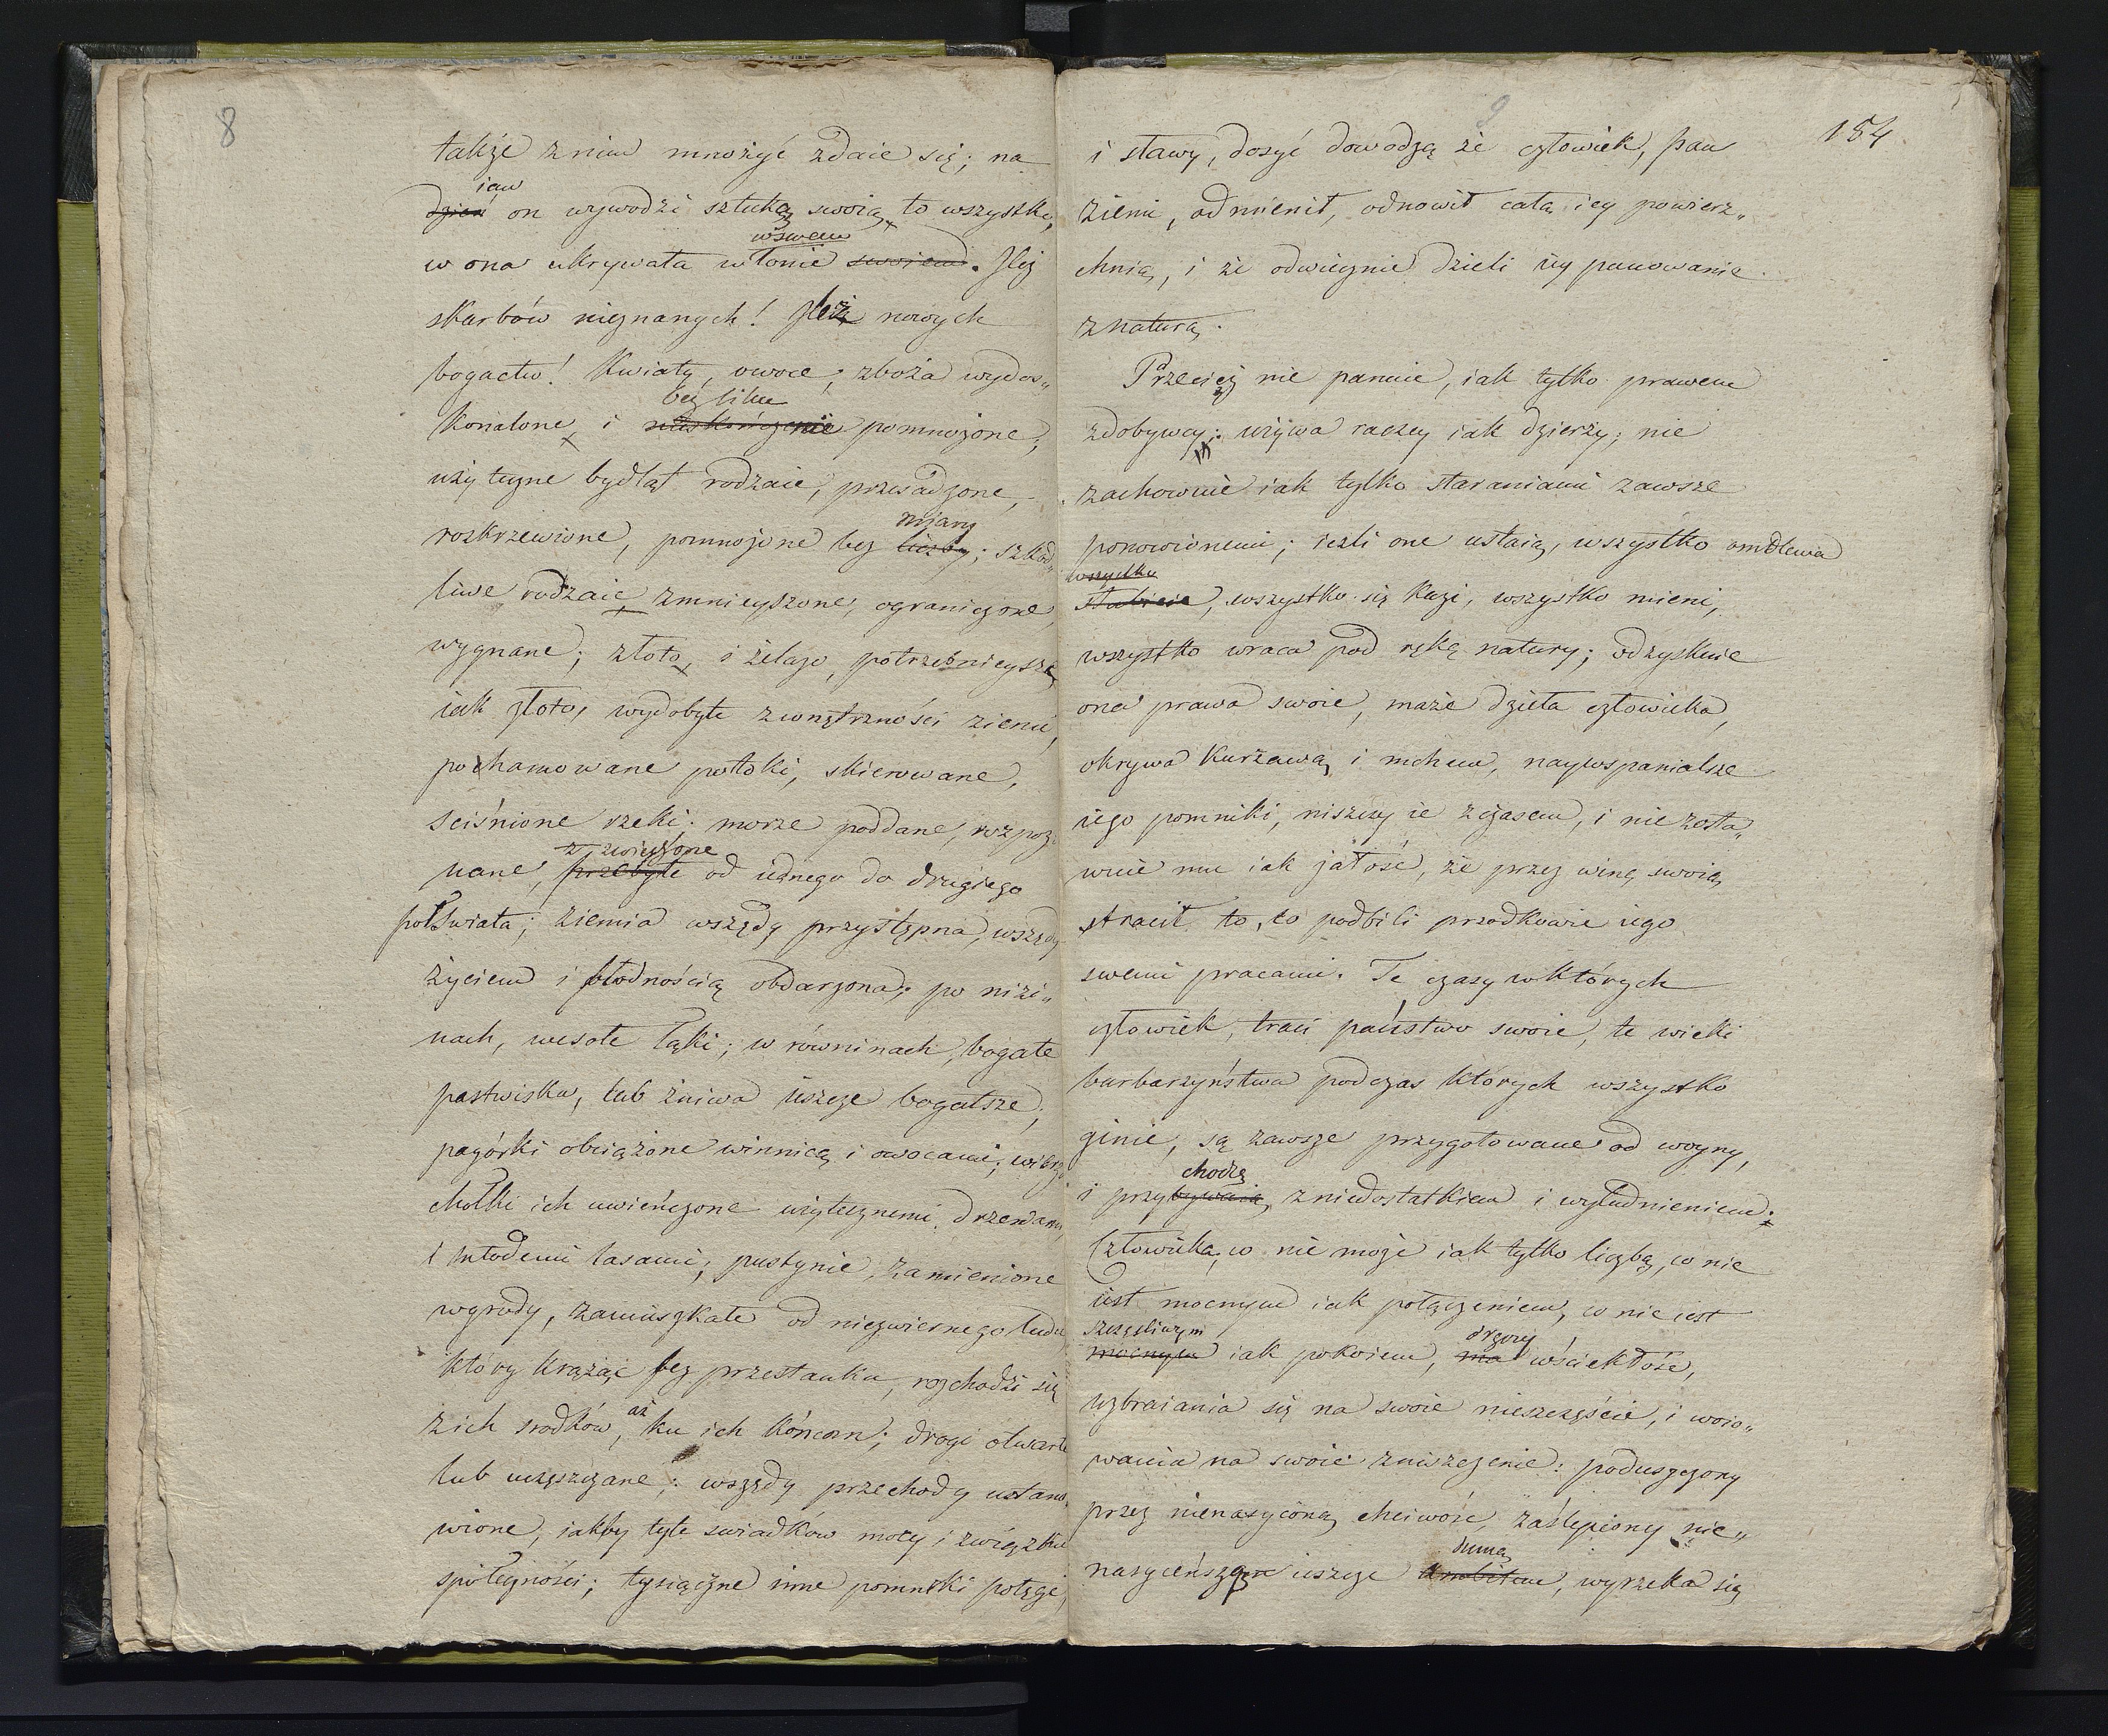 8
także z nim mnożyć zdaie się; na
iaw
dzień on wywodzi sztuką swoią to wszystko,
w swem
w ona ukrywała w łonie swoiem. Ileż
skarbów nieznanych! Ileż nowych
bogactw! Kwiaty, owoce, zboża wydos„
bez liku
konalone, i nieskończenie pomnożone;
użyteczne bydląt rodzaie, przesadzone,
miary
rozkrzewione, pomnożone bez liczby; szkod„
liwe rodzaie zmnieyszone, ograniczone,
wygnane; złoto, i żelazo, potrzebnieysze
iak złoto, wydobyte z wnętrzności ziemi,
pohamowane potoki, skierowane,
sciśnione rzeki. morze poddane, rozpoz„
zwiedzone
nane, przebyte od iednego do drugiego
półświata; ziemia wszędy przystępna, wszędy
życiem i płodnością obdarzona; po nizi„
nach, wesołe łąki; w równinach, bogate
pastwiska, lub żniwa ieszcze bogatsze;
pagórki obciążone winnicą i owocami; wierz„
chołki ich uwieńczone użytecznemi drzewami,
i młodemi lasami; pustynie zamienione
w grody, zamieszkałe od niezmiernego ludu,
który krążąc bez przestanku, rozchodzi się
aż
z ich srodków, ku ich końcom; drogi otwarte
lub uczęszczane; wszędy przechody ustano„
wione, iakby tyle swiadków mocy i związku
społeczności; tysiączne inne pomniki potęgi,
9
184
i sławy, dosyć dowodzą że człowiek, pan
ziemi, odmienił, odnowił całą iey powierz„
chnią, i że odwiecznie dzieli iey panowanie
z naturą.
Przecież nie panuie, iak tylko prawem
zdobywcy; używa raczey iak dzierży; nie
zachowuie iak tylko staraniami zawsze
ponowionemi; ieźli one ustaią, wszystko omdlewa
wszystko
słabieie, wszystko się kazi, wszystko mieni,
wszystko wraca pod rękę natury; odzyskuie
ona prawa swoie, maże dzieła człowieka,
okrywa kurzawą i mchem, naywspanialsze
iego pomniki, niszczy ie z czasem, i nie zosta„
wuie mu iak żałość, że przez winę swoią
stracił to, co podbili przodkowie iego
swemi pracami. Te czasy w których
człowiek, traci państwo swoie, te wieki
barbarzyństwa podczas których wszystko
ginie, są zawsze przygotowane od woyny,
chodzą
i przybywaią, z niedostatkiem i wyludnieniem.
Człowieka, co nie może iak tylko liczbą, co nie
iest mocnym iak połączeniem, co nie iest
szczęśliwym
dręczy
mocnym iak pokoiem, ma wściekłość,
uzbraiania się na swoie nieszczęście, i woio„
wania na swoie zniszczenie: poduszczony
przez nienasyconą chciwość, zaślepiony nie„
dumą
nasyceńszą ieszcze ambitem, wyrzeka się